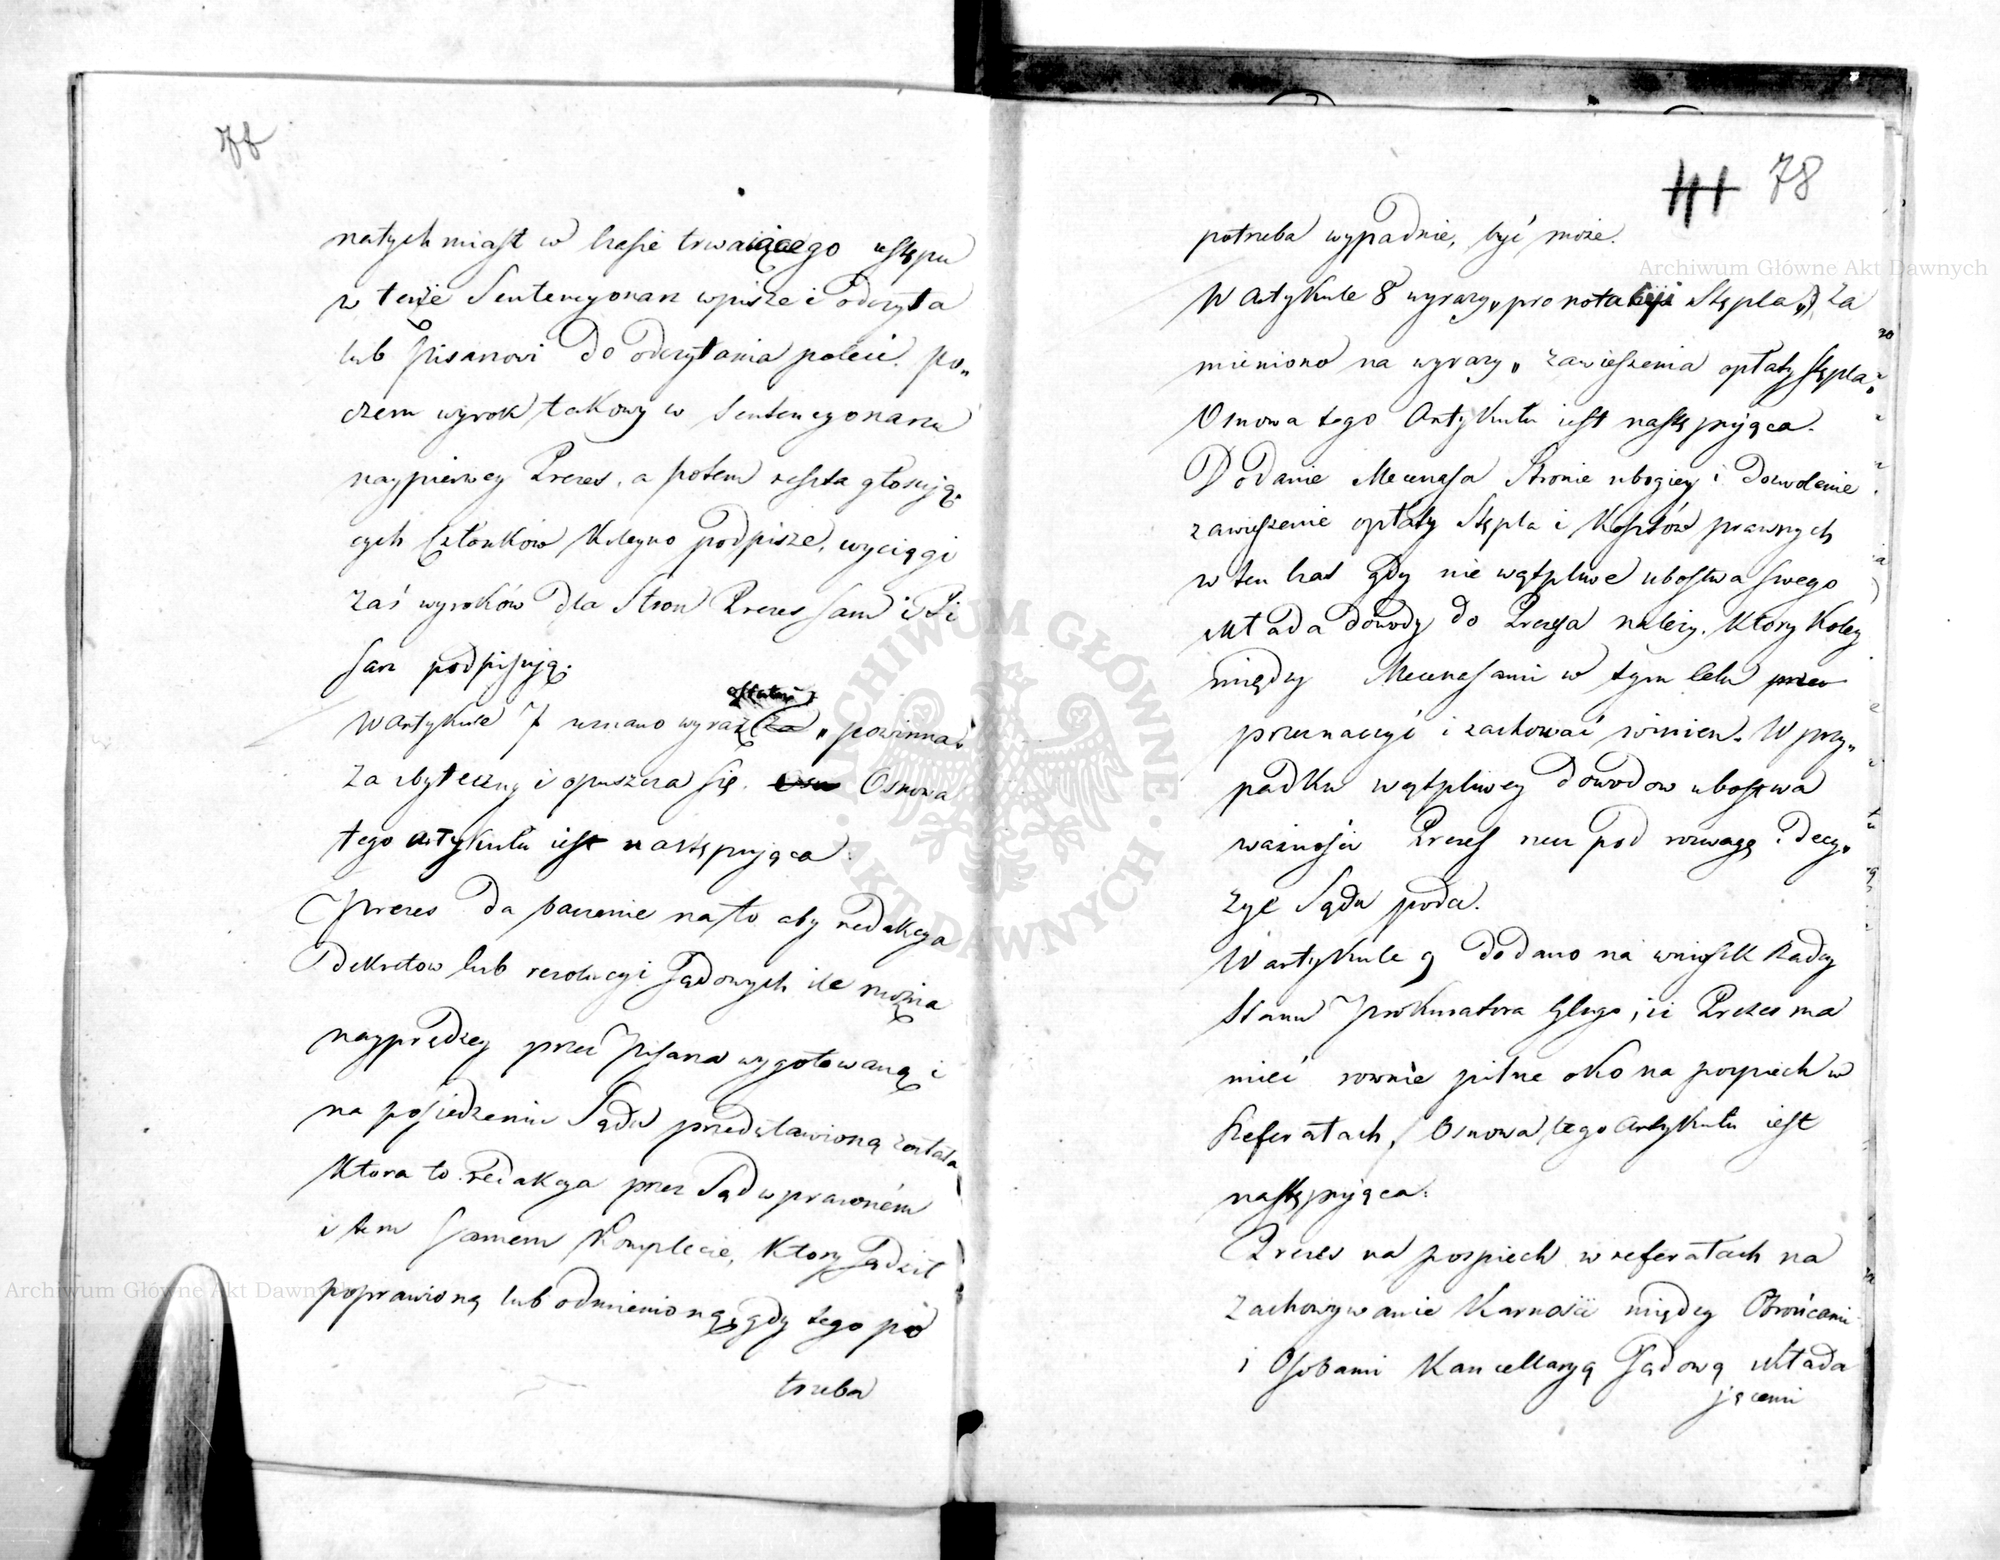 78
natychmiast w czasie trwaiącego ustępu
w tenże Sentencyonarz wpisze i odczyta
lub pisarzowi do odczytania poleci. po„
czem wyrok takowy w Sentencyonarzu
naypierwey Prezes, a potem reszta głosują„
cych Członków Koleyno podpisze, wyciągi
zaś wyroków dla Stron Prezes sam i Pi
sarz podpisują.
W artykule 7 uznano wyraz ostatni „powinna"
za zbyteczny i opuszcza się. Osnowa
tego artykułu iest następuiąca:
Prezes da baczenie na to aby redakcya
Dekretow lub rezolucyi Sądowych ile można
nayprędzey przez Pisarza wygotowaną i
na posiedzeniu Sądu przedstawioną została
Która to redakcya przez Sąd w prawném
i tem samem Komplecie, Ktory Sądził
poprawioną lub odmienioną, gdy tego po
trzeba
78
potrzeba wypadnie, być może.
W Artykule 8 wyrazy „pronotacyi Stępla„ za
mieniono na wyrazy „zawieszenia opłaty stępla„
Osnowa tego Artykułu iest następuiąca.
Dodanie Mecenasa Stronie ubogiey i Dozwolenie
zawieszenie opłaty Stępla i Kosztów prawnych
w ten czas gdy nie wątpliwe ubostwa swego
układa dowody do Prezesa należy. Który Koley
między Mecenasami w tym celu
przeznaczyć i zachować winien. W przy„
padku wątpliwey dowodow ubostwa
ważności Prezes rzecz pod rozwagę i decy„
zyę Sądu poda.
W artykule 9 dodano na wniosek Radcy
Stanu Prokuratora Glngo, iż Prezes ma
mieć rownie pilne oko na pospiech w
Referatach, Osnowa tego Artykułu iest
następuiąca:
Prezes na pospiech w referatach na
zachowywanie Karności między Obrońcami
i Osobami Kancellaryą Sądową składa
jącemi
Archiwum Główne Akt Dawnych
Archiwum Główne Akt Dawnych
ARCHIWUM GŁÓWNE AKT DAWNYCH